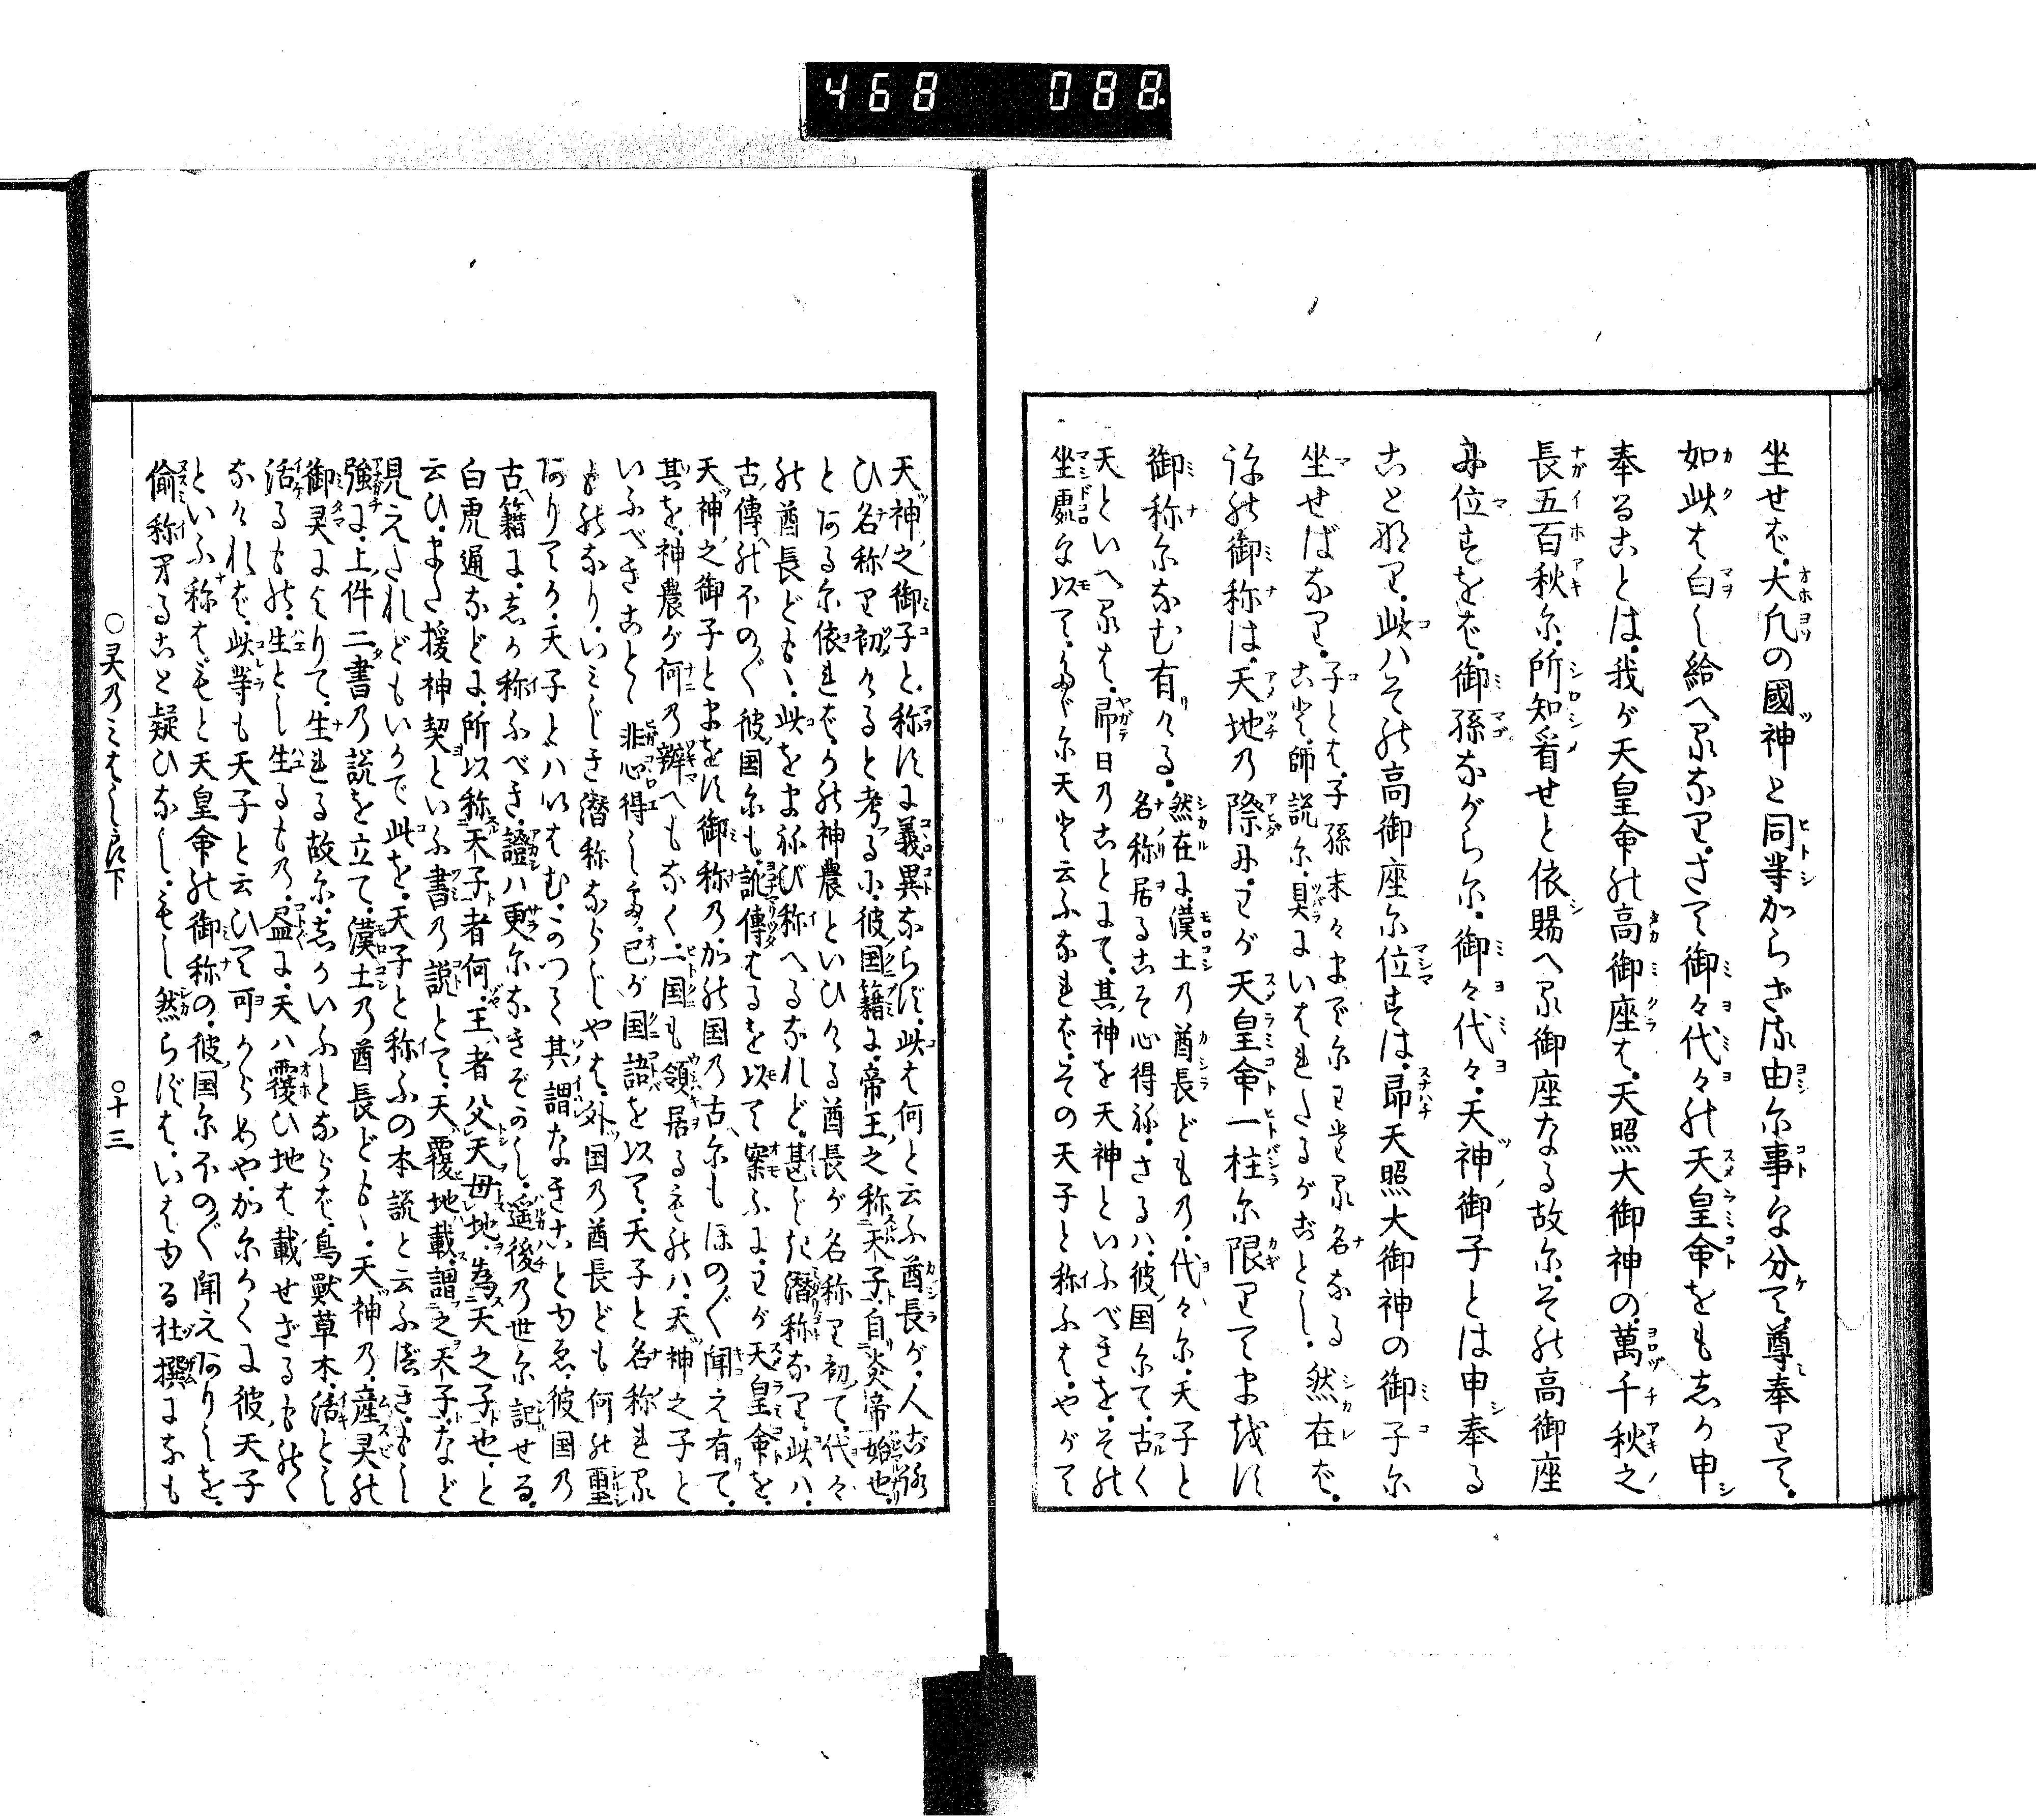 468 088
坐せば。大凡の國神と同等からざる由尓事な分て。尊奉りて。
如此は白し給へるなり。さて御々代々の天皇命をも志か申
奉ることは。我が天皇命の高御座は。天照大御神の。萬千秋之
長五百秋尓。所知看せと依賜へる御座なる故尓。その高御座
に位すをば。御孫ながら尓。御々代々。天神御子とは申奉る
ことなり。此ハその高御座尓位すは。即天照大御神の御子尓
坐せばなり。子とは。子孫末々まで尓わたる名なる
こと。師説尓。具にいはれたるがごとし。然在ば。
御称は。天地の際に。わが天皇命一柱尓限りてまを
御称尓なむ有ける。然在に漢土の酋長どもの。代々尓。天子と
名称居るこそ心得ね。さるハ。彼国尓て。古く
天といへるは。即日のことにて。其神を天神といふべきを。その
坐處を以て。たゞ尓天と云ふなれば。その天子と称ふは。やがて
天神之御子と。称すに義異ならず。此は何と云ふ酋長が。人
ひ名称り初けると考るに。彼国籍に。帝王之称天子。自炎帝始也。
とある尓依れば。かの神農といひける酋長が名称り初て。代々
の酋長ども。此をまねび称へるなれど。甚じき潜称なり。此ハ。
古傳のほの〲彼国尓も。訛傳はるを以て案ふに。わが天皇命を。
天神之御子とまをす御称の。かの国の古尓もほの〲聞え有て。
其を。神農が何の辨へもなく。一国も領居るものハ。天神之子と
いふべきことゝ非心得したる。己が国語を以て。天子と名称れる
ものなり。いみじき潜称ならじやは。外国の酋長ども何の
ありてか。天子とハいはむ。このつく其謂なきことゆゑ。彼国の
古籍に。志か称ふべき。證ハ更尓なきぞかし。遥後の世尓記せる。
白虎通などに。所以称天子者何。王者父天母地。為天之子也。と
云ひ。また援神契といふ書の説とて。天覆地載。謂之天子。など
見えたれどもいかで此を。天子と称ふの本説と云ふ
強に。上件二書の説を立て。漢土の酋長ども。天神の。産灵の
御灵によりて。生れる故尓。志かいふとならば。鳥獣草木。活とし
活るもの。生とし生るもの。盡に。天ハ覆ひ地は載せざるものゝ
なければ。此等も天子と云ひて可からめや。か尓かくに彼天子
といふ称は。もと天皇命の御称の。彼国尓ほの〲聞えありしを。
偸称するこ と疑ひなし。もし然らずは。いはゆる杜撰になも
○灵乃みはしら下 ○十三